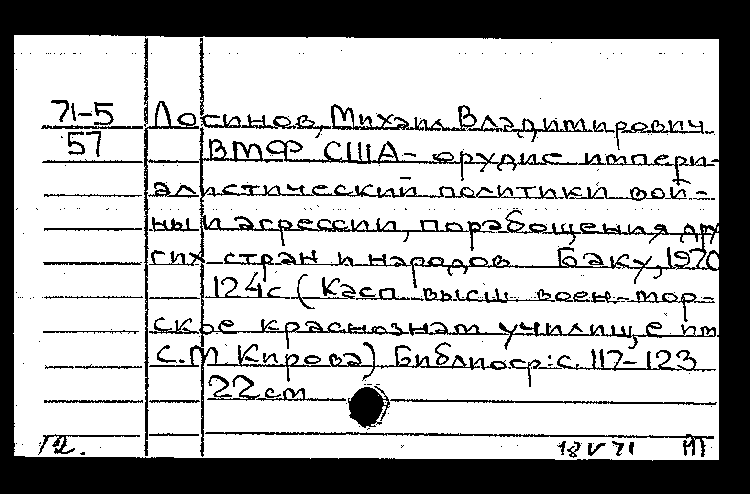 71-5
57
Лосинов, Михаил Владимирович
ВМФ США - орудие импери-
алистический политики вой-
ны и агрессии, порабощения дру
гих стран и народов Баку, 1970
124с (Касп высш воен-мор-
ское краснознам училище им
С.М Кирова) Библиогр: с. 117-123
22 см
18 V 71 МТ